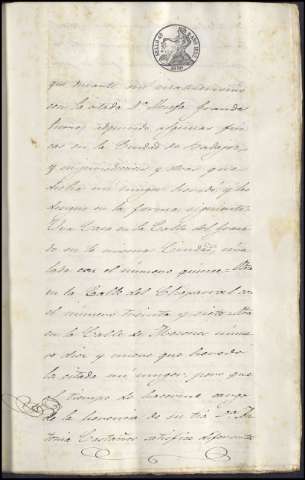 que durante mi matrimonio
con la citada D.ª Josefa Granda
hemos adquirido algunas fin
cas en la Ciudad de Badajoz
y su jurisdiccion y otras que
dicha mi muger heredó y las
tenemos en la forma siguiente
Una Casa en la Calle del
do en la misma Ciudad, seña
lada con el número quince. Otra
en la Calle del Chaparral con
el número treinta y siete. Otra
en la Calle de Morenos núme
ro diez y nueve que heredó
la citada mi muger, pero que
al tiempo de hacerme cargo
de la herencia de su tia D.ª An
tonia Castaños satisfice diferentes